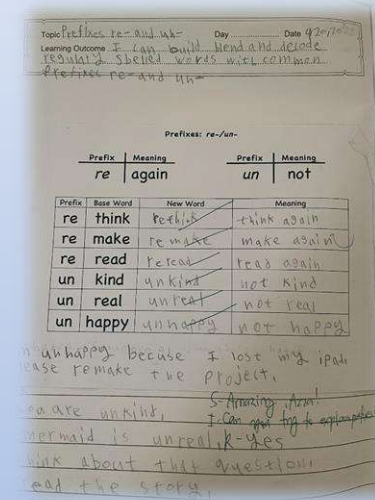 Topic Prefixes re- and un- Day Date
Learning Outcome I can build blend and decode
regularly spelled words with common
Prefixes re- and un-
Prefixes: re-/un-
Prefix Meaning Prefix Meaning
re again un not
Prefix Base Word New Word Meaning
re think rethink think again
re make remake make again
re read reread read again
un kind unkind not kind
un real unreal not real
un happy unhappy not happy
unhappy becuse I lost my ipad.
ease remake the project.
S- Amazing
ou are unkind. I- Can you try to
mermaid is unreal. R-yes
hink about that question.
ead the story.